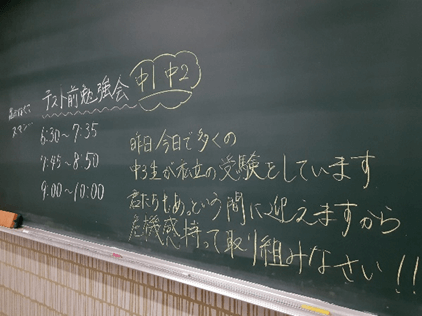 テスト前勉強会 中1 中2
6:30〜7:35
7:45〜8:50
9:00〜10:00
昨日今日で多くの
中3生が私立の受験をしています
君たちもあっという間に迎えますから
危機感持って取り組みなさい!!